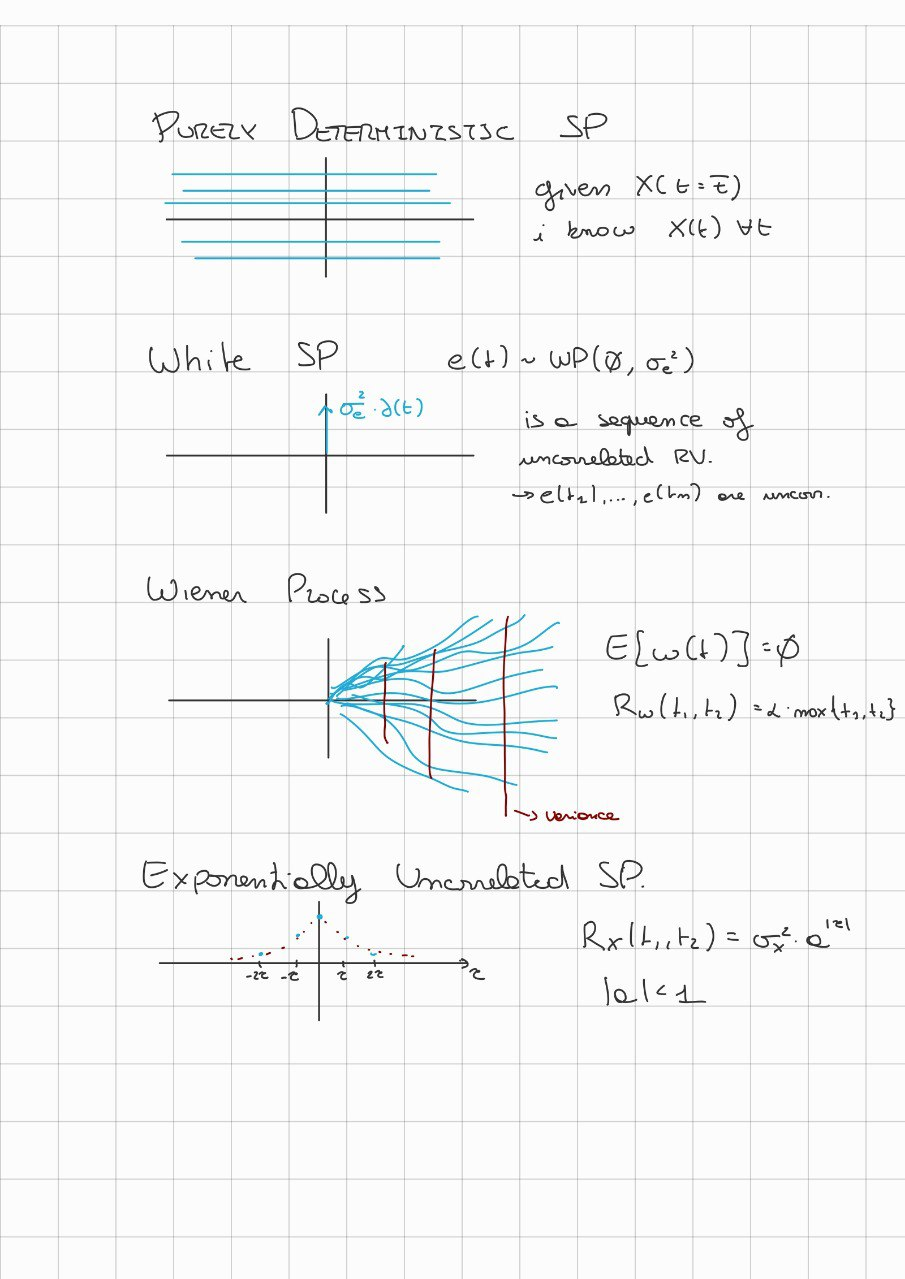 PURELY DETERMINISTIC SP
given X(t = t̅)
i know X(t) ∀t
White SP e(t) ~ WP(∅, σₑ²)
σₑ² · ∂(t)
is a sequence of
uncorrelated RV.
→ e(t₁), ..., e(tₘ) are uncorr.
Wiener Process
E[w(t)] = ∅
R_w(t₁, t₂) = α · max{t₁, t₂}
→ variance
Exponentially Uncorrelated SP.
R_x(t₁, t₂) = σₓ² · a^|τ|
-2τ -τ τ 2τ τ
|a| < 1